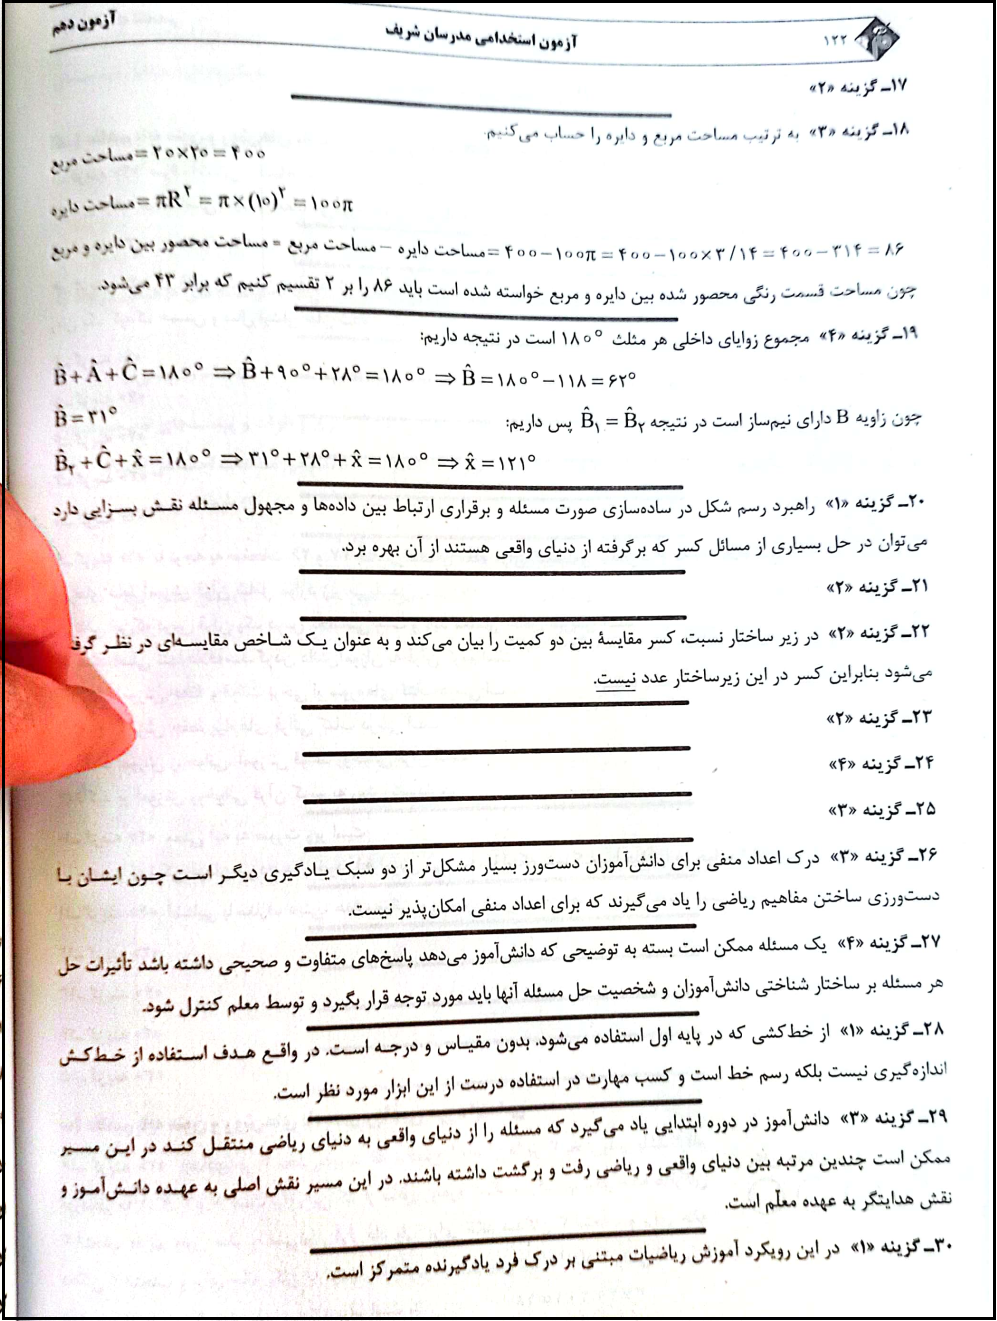 ۱۲۲
آزمون استخدامی مدرسان شریف
آزمون دهم
۱۷ـ گزینه «۲»
۱۸ـ گزینه «۳» به ترتیب مساحت مربع و دایره را حساب می‌کنیم.
مساحت مربع = ۲۰×۲۰ = ۴۰۰
مساحت دایره = πR^۲ = π×(۱۰)^۲ = ۱۰۰π
مساحت محصور بین دایره و مربع = مساحت مربع − مساحت دایره = ۴۰۰−۱۰۰π = ۴۰۰−۱۰۰×۳/۱۴ = ۴۰۰−۳۱۴ = ۸۶
چون مساحت قسمت رنگی محصور شده بین دایره و مربع خواسته شده است باید ۸۶ را بر ۲ تقسیم کنیم که برابر ۴۳ می‌شود.
۱۹ـ گزینه «۴» مجموع زوایای داخلی هر مثلث ۱۸۰° است در نتیجه داریم:
B̂+Â+Ĉ=۱۸۰° ⇒ B̂+۹۰°+۲۸°=۱۸۰° ⇒ B̂=۱۸۰°−۱۱۸=۶۲°
چون زاویه B دارای نیم‌ساز است در نتیجه B̂₁ = B̂₂ پس داریم:
B̂=۳۱°
B̂₂+Ĉ+x̂=۱۸۰° ⇒ ۳۱°+۲۸°+x̂=۱۸۰° ⇒ x̂=۱۲۱°
۲۰ـ گزینه «۱» راهبرد رسم شکل در ساده‌سازی صورت مسئله و برقراری ارتباط بین داده‌ها و مجهول مسئله نقش بسزایی دارد
می‌توان در حل بسیاری از مسائل کسر که برگرفته از دنیای واقعی هستند از آن بهره برد.
۲۱ـ گزینه «۲»
۲۲ـ گزینه «۲» در زیر ساختار نسبت، کسر مقایسهٔ بین دو کمیت را بیان می‌کند و به عنوان یک شاخص مقایسه‌ای در نظر گرف
می‌شود بنابراین کسر در این زیرساختار عدد نیست.
۲۳ـ گزینه «۲»
۲۴ـ گزینه «۴»
۲۵ـ گزینه «۳»
۲۶ـ گزینه «۳» درک اعداد منفی برای دانش‌آموزان دست‌ورز بسیار مشکل‌تر از دو سبک یادگیری دیگر است چون ایشان با
دست‌ورزی ساختن مفاهیم ریاضی را یاد می‌گیرند که برای اعداد منفی امکان‌پذیر نیست.
۲۷ـ گزینه «۴» یک مسئله ممکن است بسته به توضیحی که دانش‌آموز می‌دهد پاسخ‌های متفاوت و صحیحی داشته باشد تأثیرات حل
هر مسئله بر ساختار شناختی دانش‌آموزان و شخصیت حل مسئله آنها باید مورد توجه قرار بگیرد و توسط معلم کنترل شود.
۲۸ـ گزینه «۱» از خط‌کشی که در پایه اول استفاده می‌شود. بدون مقیاس و درجه است. در واقع هدف استفاده از خط‌کش
اندازه‌گیری نیست بلکه رسم خط است و کسب مهارت در استفاده درست از این ابزار مورد نظر است.
۲۹ـ گزینه «۳» دانش‌آموز در دوره ابتدایی یاد می‌گیرد که مسئله را از دنیای واقعی به دنیای ریاضی منتقل کند در این مسیر
ممکن است چندین مرتبه بین دنیای واقعی و ریاضی رفت و برگشت داشته باشند. در این مسیر نقش اصلی به عهده دانش‌آموز و
نقش هدایتگر به عهده معلّم است.
۳۰ـ گزینه «۱» در این رویکرد آموزش ریاضیات مبتنی بر درک فرد یادگیرنده متمرکز است.